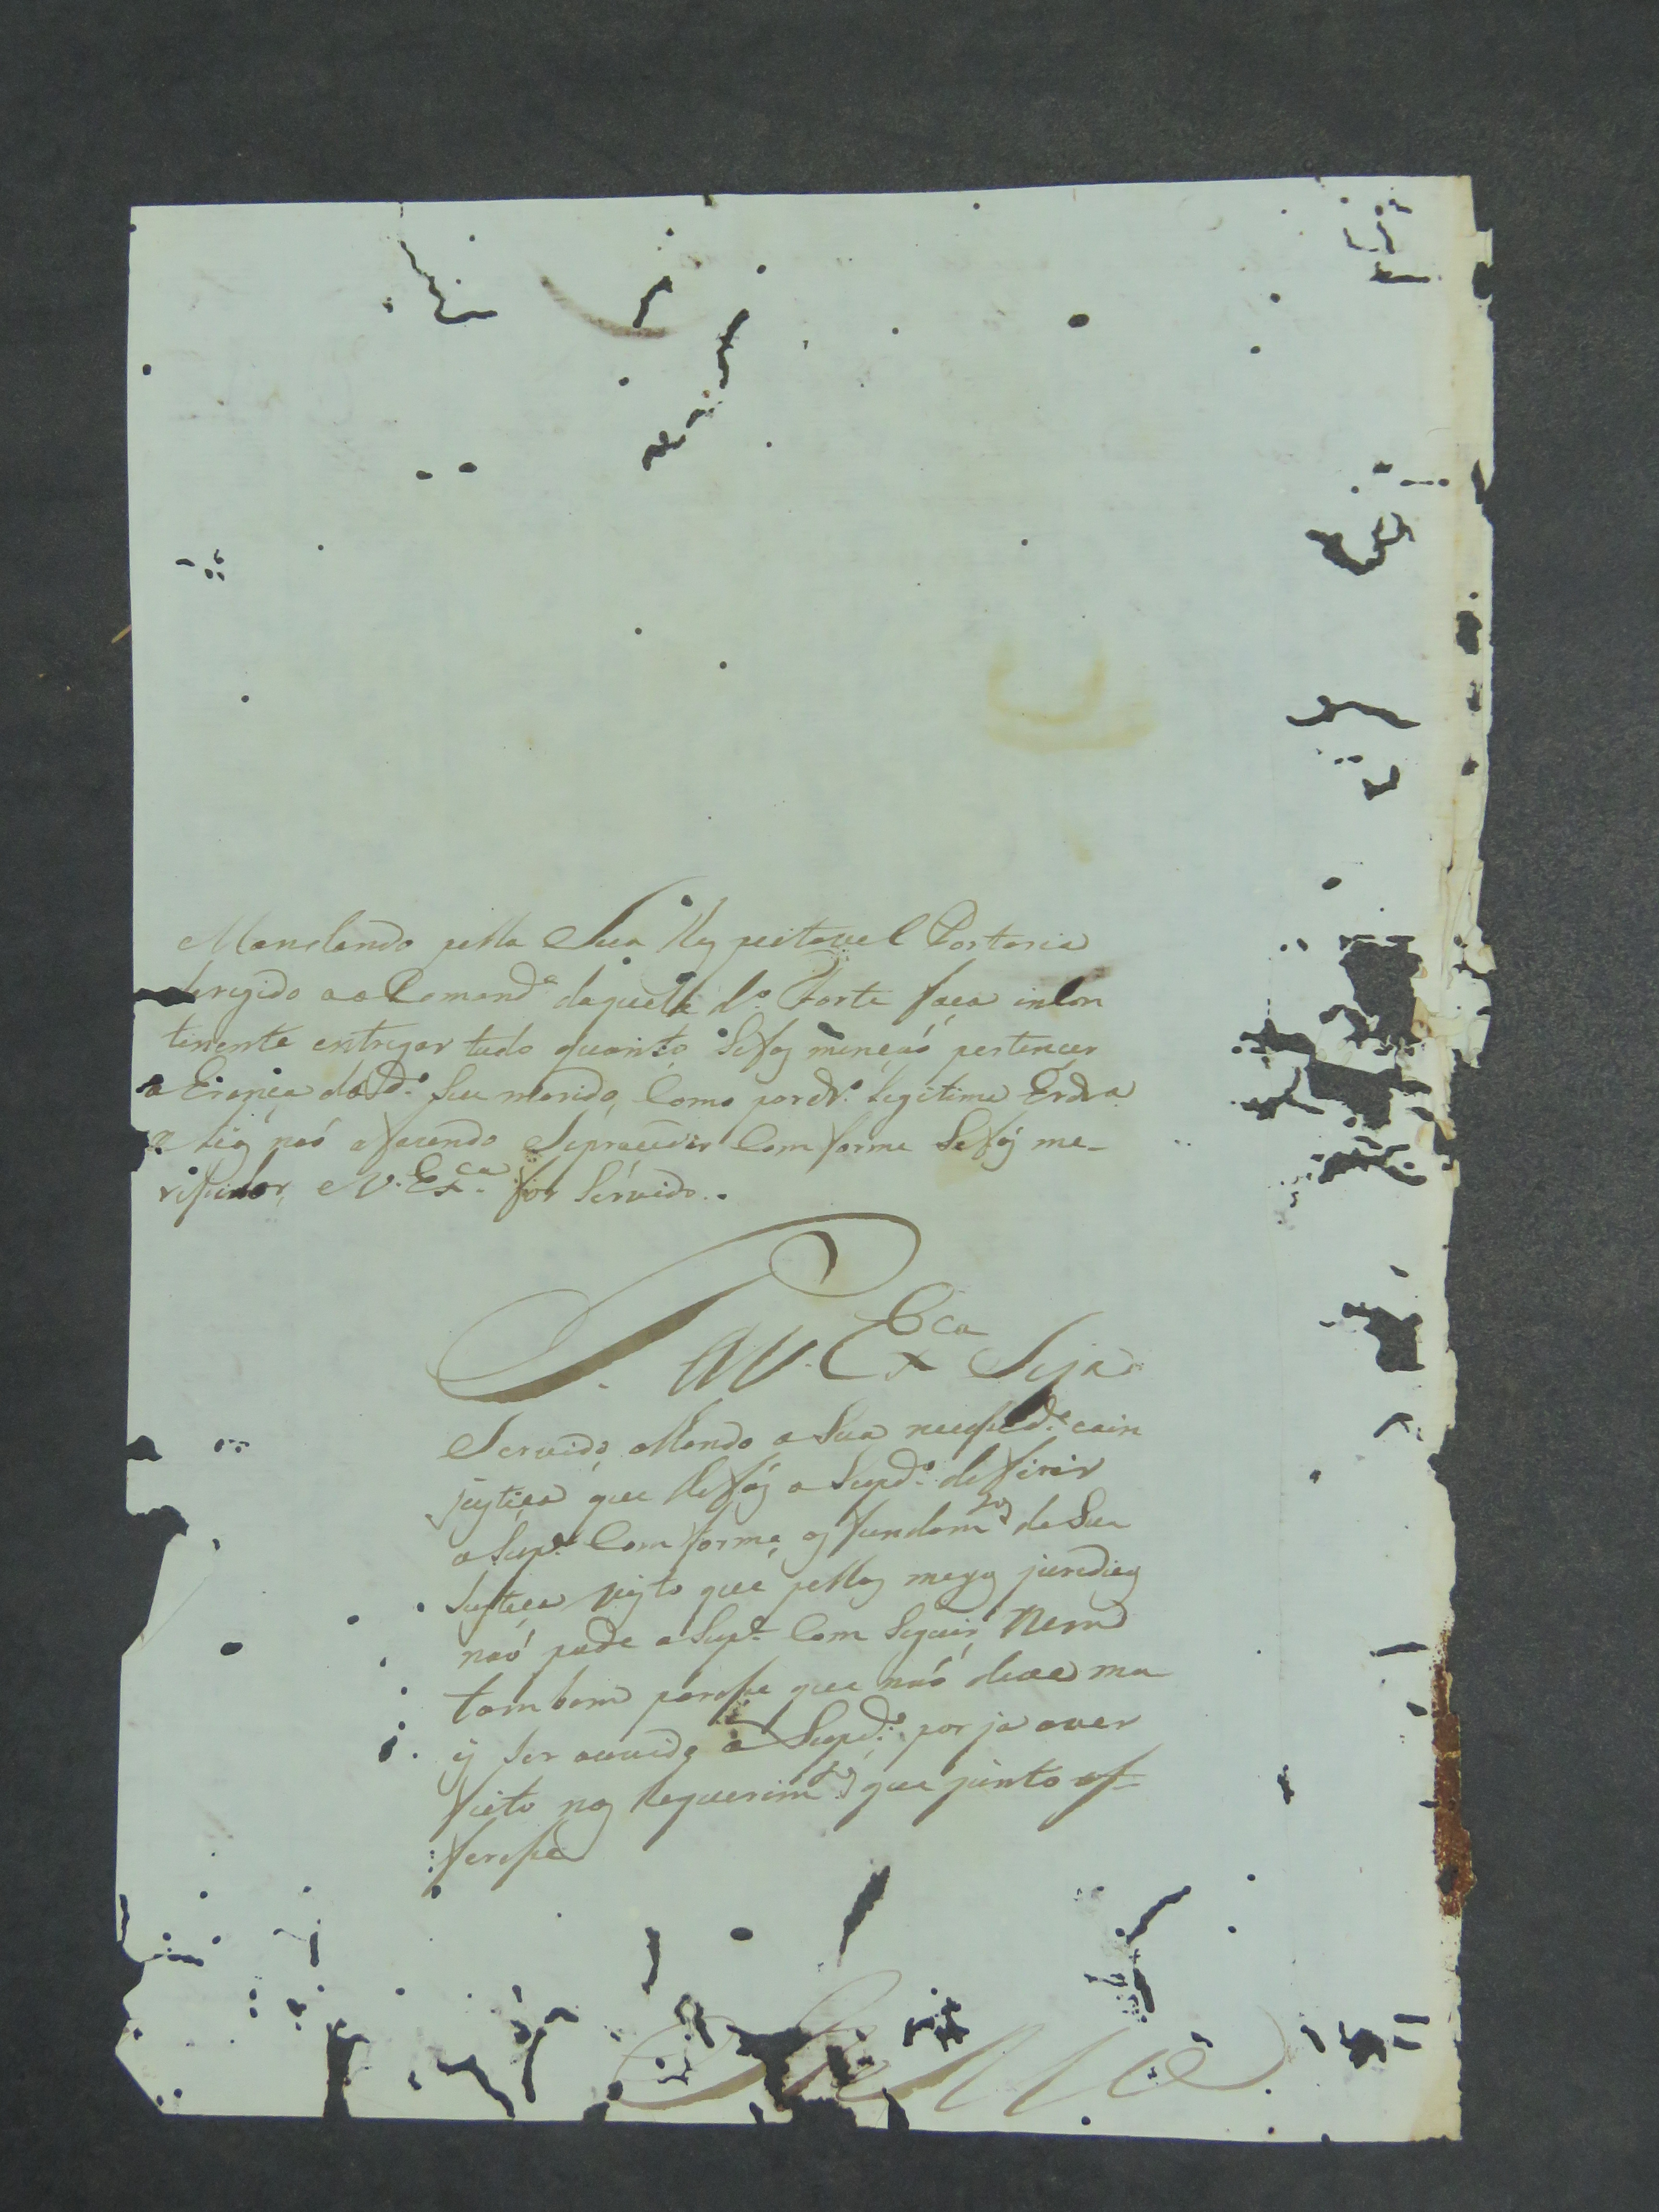 Mandando pella Sua Respeitavel Portaria
deregido ao Comand.e daquelle d.o Forte faça incon
tinente entregar tudo quanto Se faz menção pertencer
a Erança do d.o Seu marido, Como por dr.o Legitima Erdra
e não afazendo Seproceder Com forme Se faz me
e V. Ex.ca for Servido.
P. a V. Ex.ca Seja
Servido, Mando a Sua
justiça que Se faz a Supd.o deferir
a Sup.e Com forme os fundam.tos de Sua
Justiça visto que pellos meyos juredicos
não pode a Sup.e Com Seguir, Nem
tambem parese que não deve ma
is Ser ouvido o Supd.o por ja aver
feito nos Requerim.tos que junto of
ferese
E R M.ce